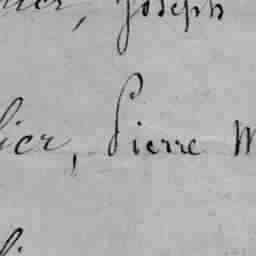 , Joseph
lier, Pierre M